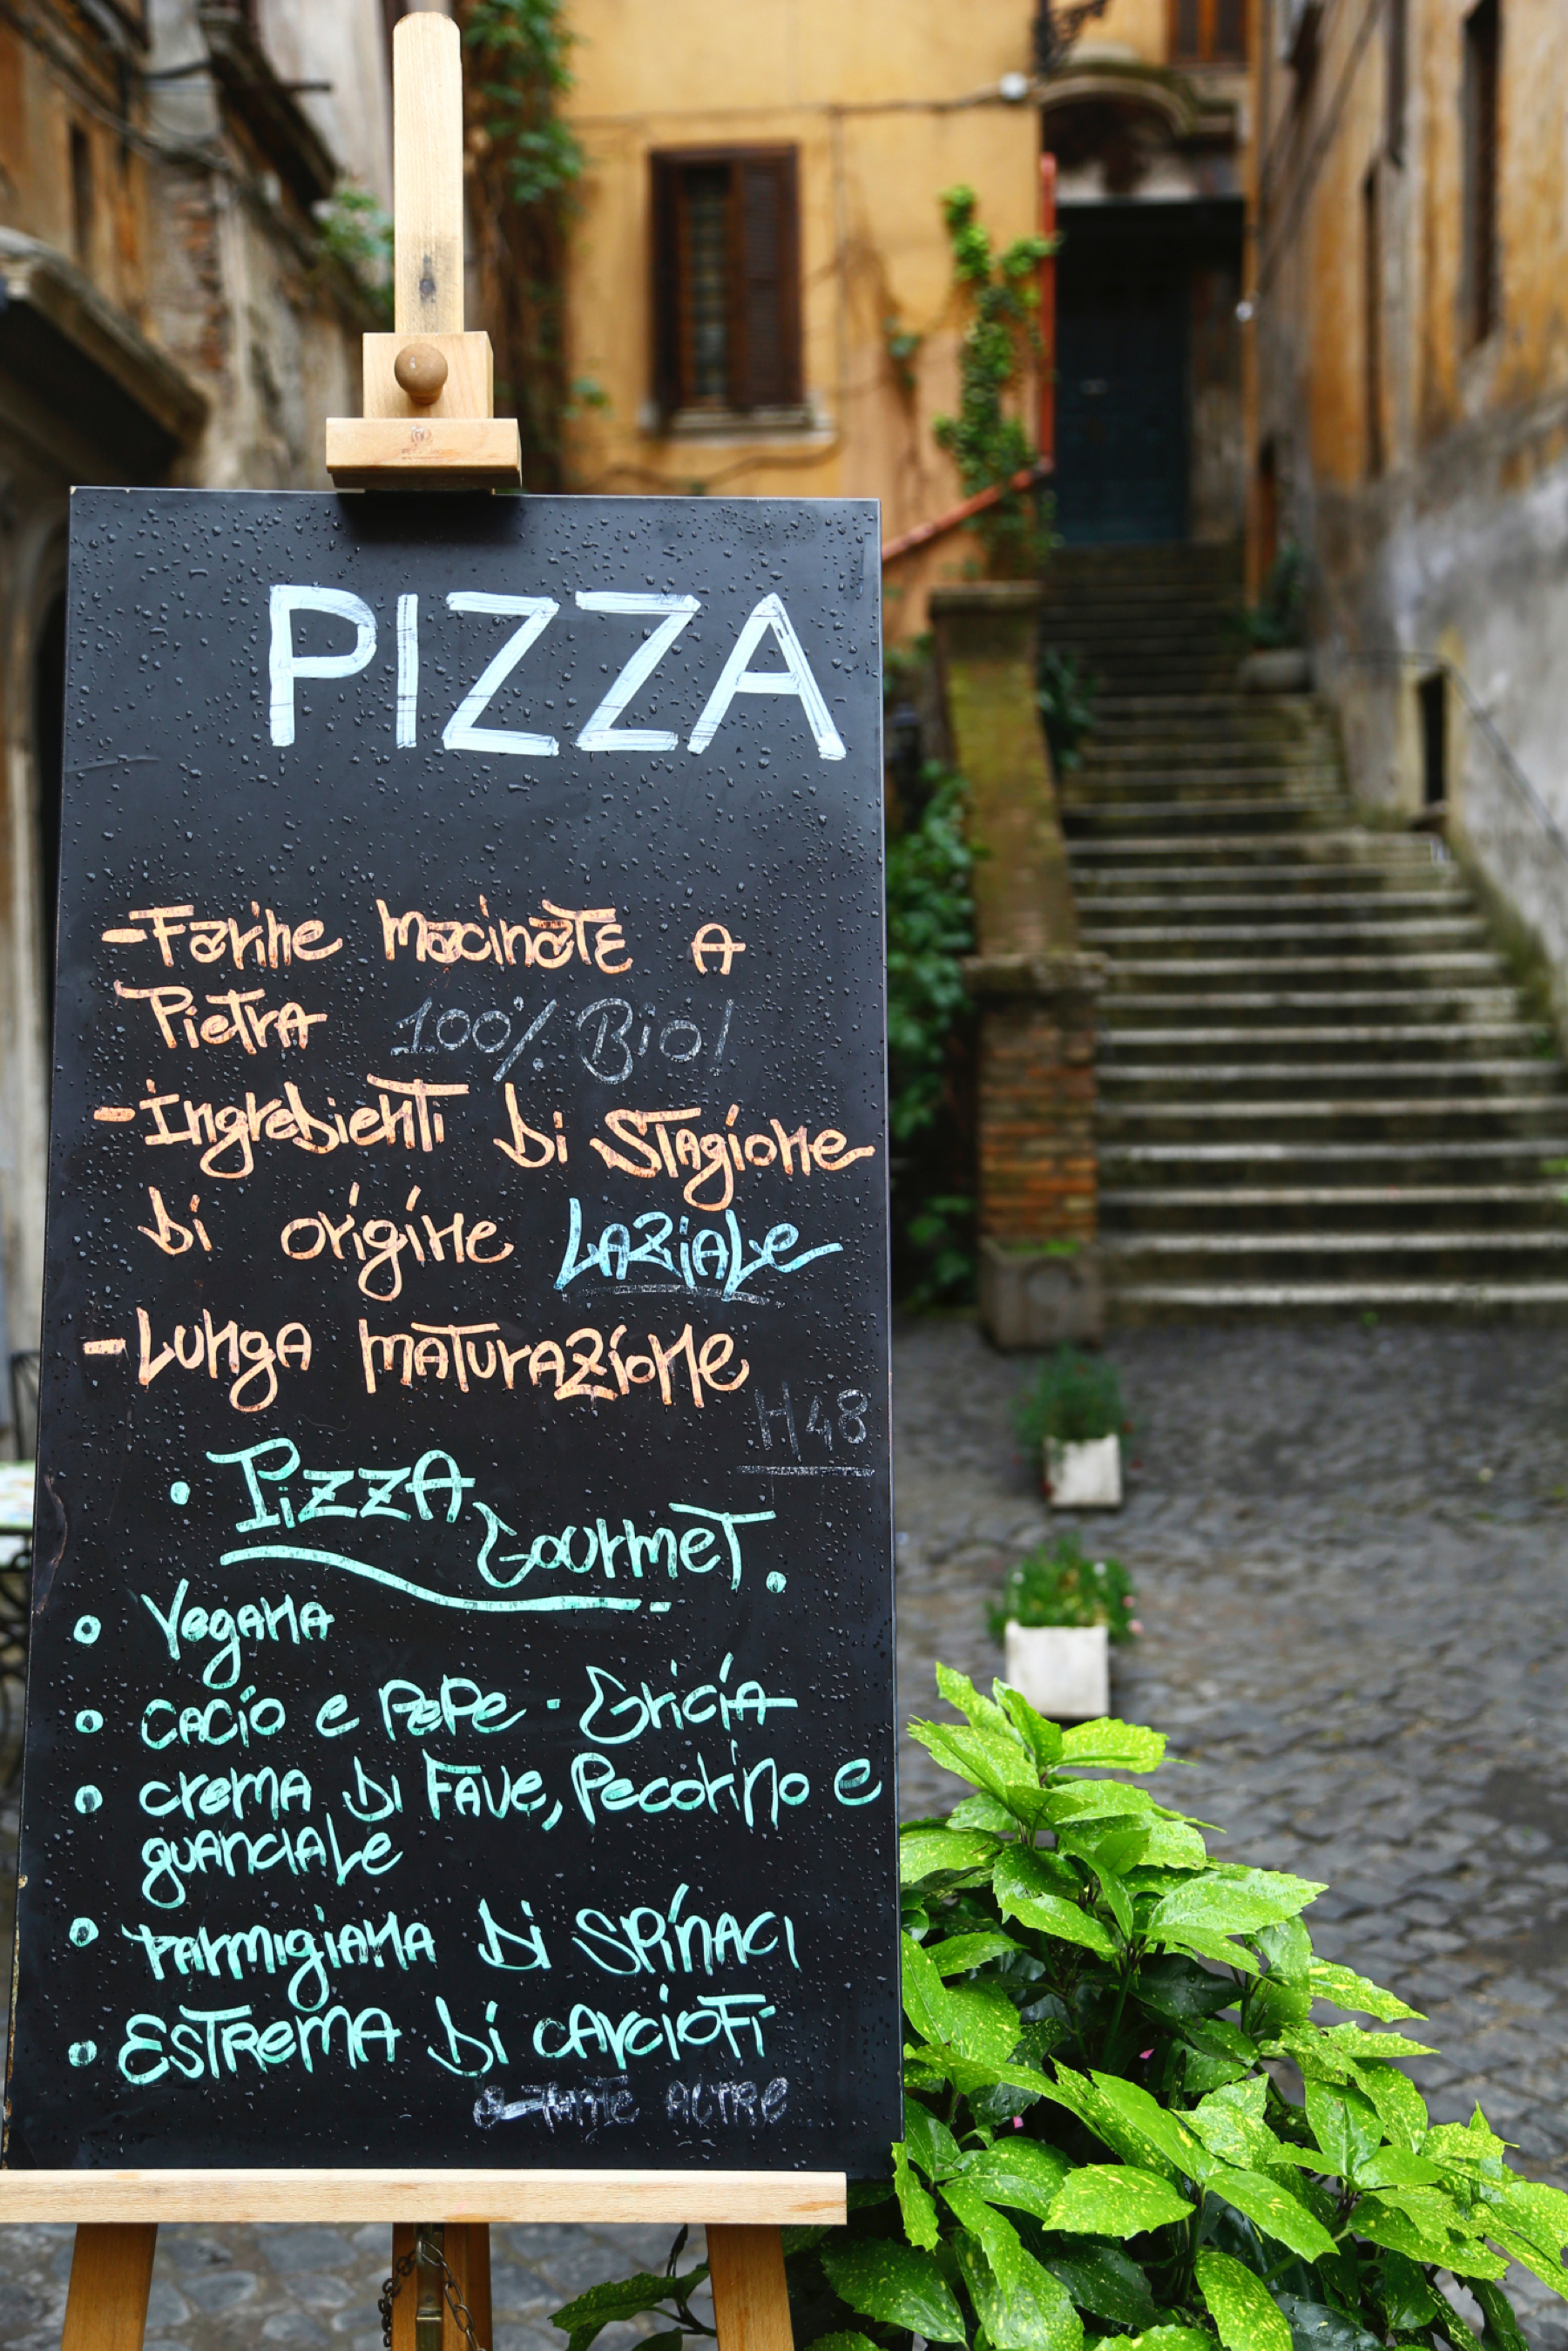 PIZZA
- Farine macinate a
Pietra 100% Bio!
- Ingredienti di stagione
di origine Laziale
- Lunga maturazione
H 48
• Pizza
Gourmet •
• Vegana
• cacio e pepe · Gricia
• crema di fave, Pecorino e
guanciale
• Parmigiana di spinaci
• Estrema di carciofi
e tante altre